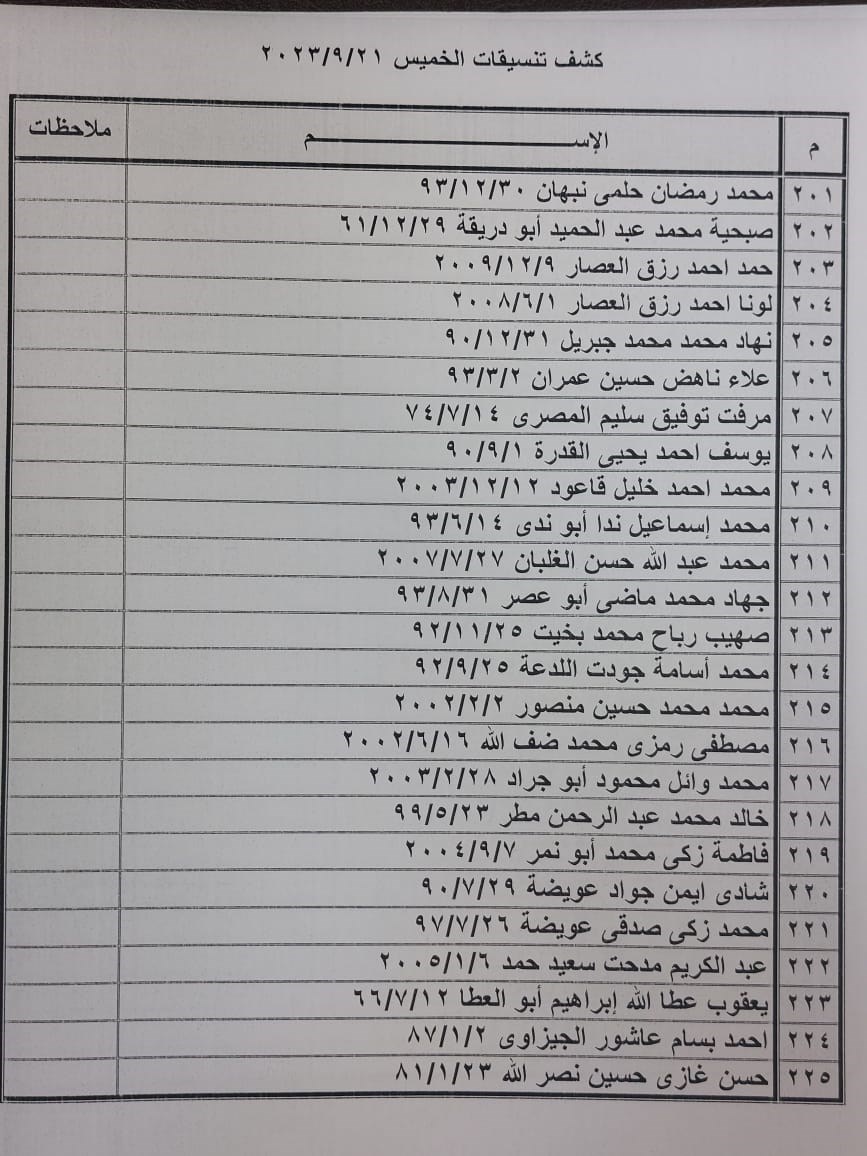 كشف تنسيقات الخميس ٢٠٢٣/٩/٢١
م الإســـــــــــــــــــــــم ملاحظات
٢٠١ محمد رمضان حلمى نبهان ٩٣/١٢/٣٠
٢٠٢ صبحية محمد عبد الحميد أبو دريقة ٦١/١٢/٢٩
٢٠٣ حمد احمد رزق العصار ٢٠٠٩/١٢/٩
٢٠٤ لونا احمد رزق العصار ٢٠٠٨/٦/١
٢٠٥ نهاد محمد محمد جبريل ٩٠/١٢/٣١
٢٠٦ علاء ناهض حسين عمران ٩٣/٣/٢
٢٠٧ مرفت توفيق سليم المصرى ٧٤/٧/١٤
٢٠٨ يوسف احمد يحيى القدرة ٩٠/٩/١
٢٠٩ محمد احمد خليل قاعود ٢٠٠٣/١٢/١٢
٢١٠ محمد إسماعيل ندا أبو ندى ٩٣/٦/١٤
٢١١ محمد عبد الله حسن الغلبان ٢٠٠٧/٧/٢٧
٢١٢ جهاد محمد ماضى أبو عصر ٩٣/٨/٣١
٢١٣ صهيب رباح محمد بخيت ٩٢/١١/٢٥
٢١٤ محمد أسامة جودت اللدعة ٩٢/٩/٢٥
٢١٥ محمد محمد حسين منصور ٢٠٠٢/٢/٢
٢١٦ مصطفى رمزى محمد ضف الله ٢٠٠٢/٦/١٦
٢١٧ محمد وائل محمود أبو جراد ٢٠٠٣/٢/٢٨
٢١٨ خالد محمد عبد الرحمن مطر ٩٩/٥/٢٣
٢١٩ فاطمة زكى محمد أبو نمر ٢٠٠٤/٩/٧
٢٢٠ شادى ايمن جواد عويضة ٩٠/٧/٢٩
٢٢١ محمد زكى صدقى عويضة ٩٧/٧/٢٦
٢٢٢ عبد الكريم مدحت سعيد حمد ٢٠٠٥/١/٦
٢٢٣ يعقوب عطا الله إبراهيم أبو العطا ٦٦/٧/١٢
٢٢٤ احمد بسام عاشور الجيزاوى ٨٧/١/٢
٢٢٥ حسن غازى حسين نصر الله ٨١/١/٢٣